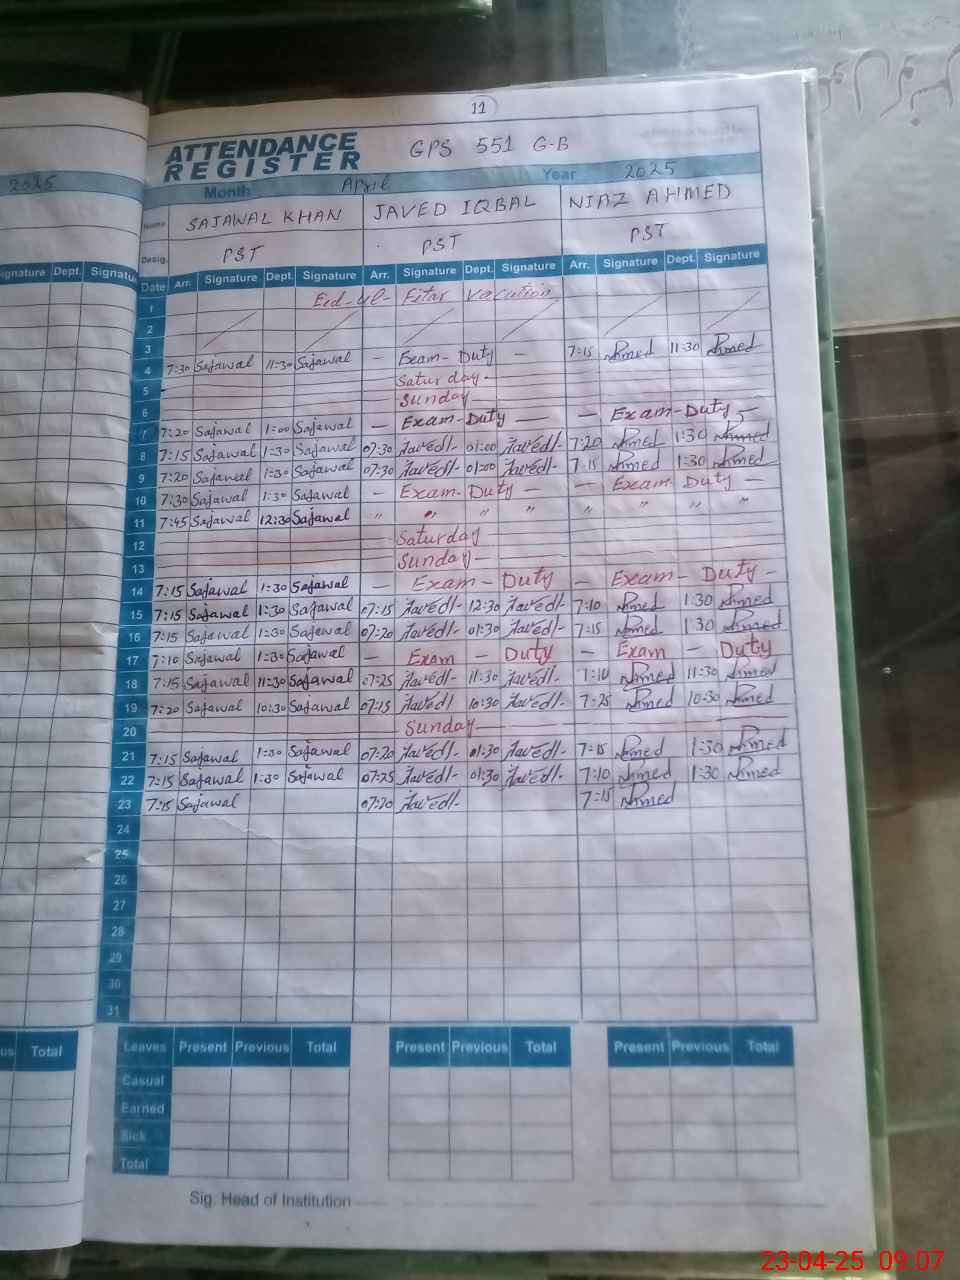 11
ATTENDANCE REGISTER GPS 551 G-B
2025
Month April Year 2025
Name SAJAWAL KHAN JAVED IQBAL NIAZ AHMED
Desig. PST PST PST
Signature Dept. Signature
Date Arr. Signature Dept. Signature Arr. Signature Dept. Signature Arr. Signature Dept. Signature
1 Eid-ul-Fitar vacation
2
3
4 7:30 Sajawal 11:30 Sajawal — Exam-Duty — 7:15 Ahmed 11:30 Ahmed
5 Saturday
6 Sunday
7 7:20 Sajawal 1:00 Sajawal — Exam-Duty — — Exam-Duty —
8 7:15 Sajawal 1:30 Sajawal 07:30 Javed 01:00 Javed 7:20 Ahmed 1:30 Ahmed
9 7:20 Sajawal 1:30 Sajawal 07:30 Javed 01:00 Javed 7:15 Ahmed 1:30 Ahmed
10 7:30 Sajawal 1:30 Sajawal — Exam-Duty — — Exam-Duty —
11 7:45 Sajawal 12:30 Sajawal " " " " " " " "
12 Saturday
13 Sunday
14 7:15 Sajawal 1:30 Sajawal — Exam-Duty — Exam-Duty —
15 7:15 Sajawal 1:30 Sajawal 07:15 Javed 12:30 Javed 7:10 Ahmed 1:30 Ahmed
16 7:15 Sajawal 1:30 Sajawal 07:20 Javed 01:30 Javed 7:15 Ahmed 1:30 Ahmed
17 7:10 Sajawal 1:30 Sajawal — Exam — Duty — Exam — Duty
18 7:15 Sajawal 11:30 Sajawal 07:25 Javed 11:30 Javed 7:10 Ahmed 11:30 Ahmed
19 7:20 Sajawal 10:30 Sajawal 07:15 Javed 10:30 Javed 7:25 Ahmed 10:30 Ahmed
20 Sunday
21 7:15 Sajawal 1:30 Sajawal 07:20 Javed 01:30 Javed 7:15 Ahmed 1:30 Ahmed
22 7:15 Sajawal 1:30 Sajawal 07:25 Javed 01:30 Javed 7:10 Ahmed 1:30 Ahmed
23 7:15 Sajawal 07:20 Javed 7:15 Ahmed
24
25
26
27
28
29
30
31
Total
Leaves Present Previous Total Present Previous Total Present Previous Total
Casual
Earned
Sick
Total
Sig. Head of Institution
23-04-25 09:07